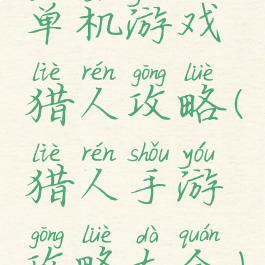 单机游戏
liè rén gōng lüè
猎人攻略(
liè rén shǒu yóu
猎人手游
gōng lüè dà quán
攻略大全)